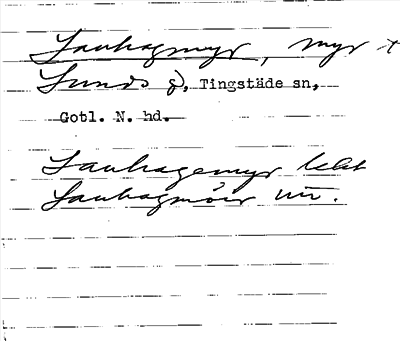 Lauhagmyr, myr +
Lunds g), Tingstäde sn,
Gotl. N. hd.
Lauhagemyr
Lauhagmöir